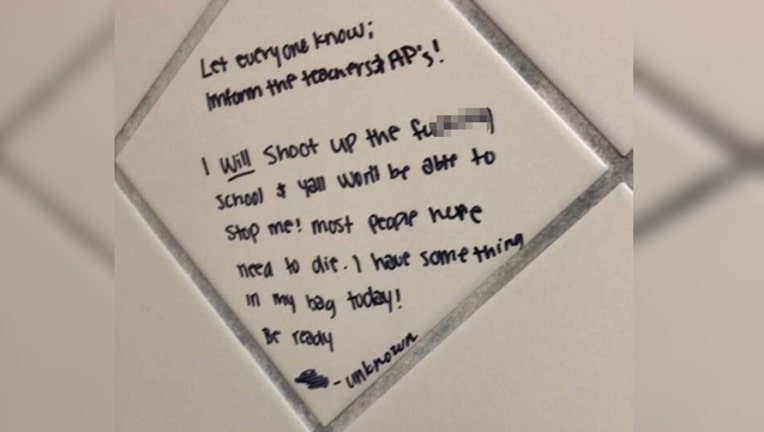 Let everyone know;
Imform the teachers & AP's!
I will shoot up the
school & yall won't be able to
stop me! most people here
need to die. I have something
in my bag today!
Be ready
- unknown